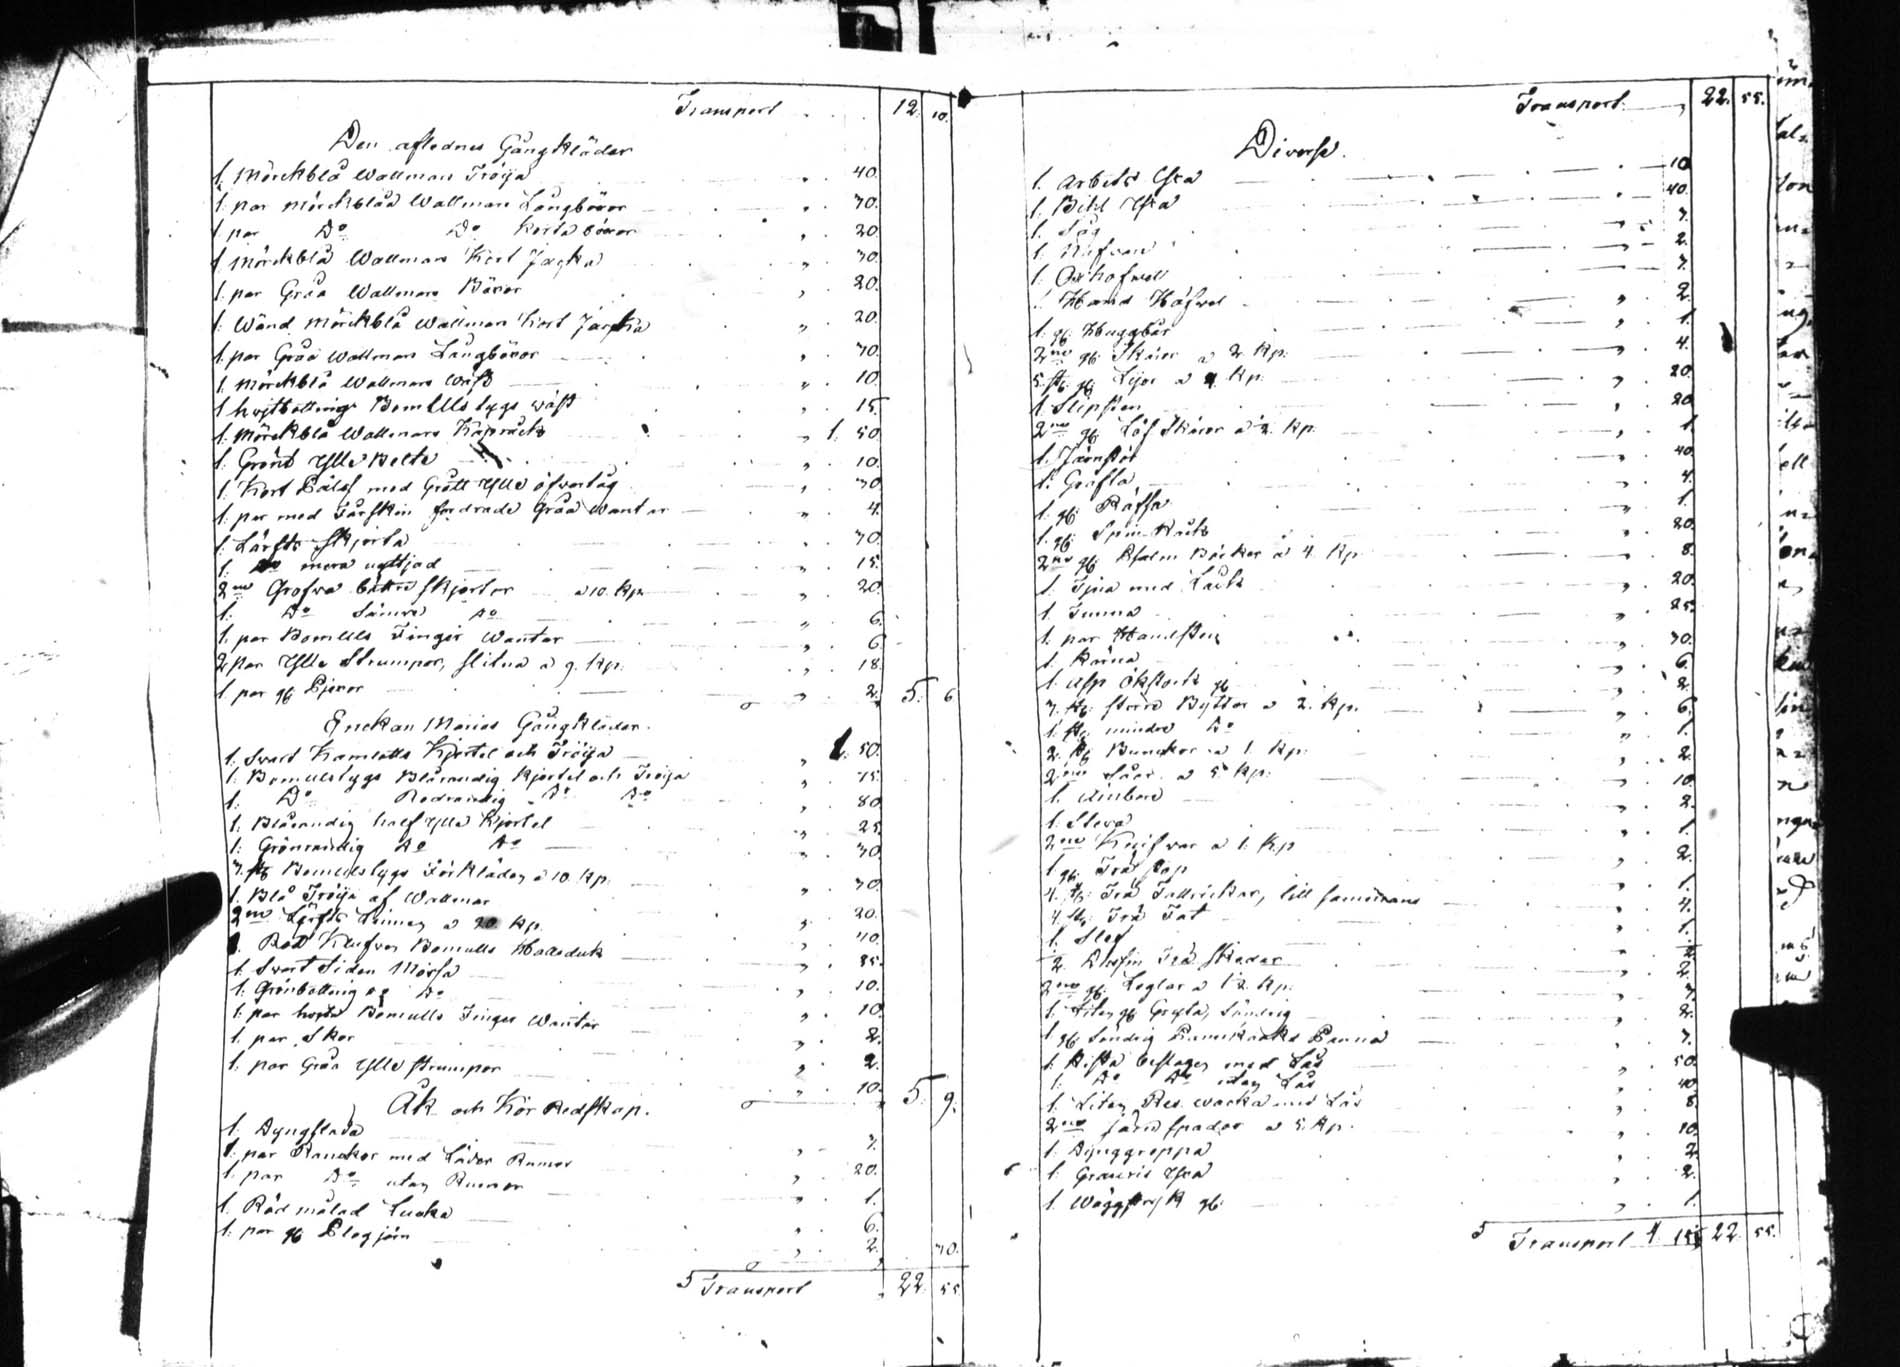 Transport 12. 10.
Den aflednes Gångkläder
1. Mörckblå Wallmars Tröija 40.
1. par mörckblåa Wallmars Långböxor 30.
1 par Do Do Korta böxor 20
1 Mörckblå Wallmars Kort Jacka 30.
1. par Gråa Wallmars Böxor 20.
1. Wänd Mörckblå Wallmars Kort Jacka 20.
1. par Gråa Wallmars Långböxor 30.
1. Mörckblå Wallmars Wäst 10.
1 hvitbottnig Bomulls tygs wäst 15.
1. Mörckblå Wallmars Kaprock 1. 50.
1. Grönt Ylle Bälte 10.
1. Kort Päls med Grått Ylle öfvertåg 30
1. par med Fårskin fordrade Gråa Wantar 4.
1. Lärfts Skjorta 30.
1. Do mera nyttjad 15.
2ne Grofva bättre Skjortor a 10. Kp. 20.
1. Do Sämre Do 6.
1. par Bomulls Finger Wantar 6
2 par Ylle Strumpor, slitna a 9. Kp. 18.
1 par gl Pjexor 2. 5. 6
Enckan Marias Gångkläder.
1. Svart Kamlotts Kjortel och Tröija 1. 50.
1. Bomulstygs Blårandig Kjortel och Tröija 75.
1. Do Rödrandig Do Do 80
1. Blårandig half Ylle Kjortel 25.
1. Grönrandig Do Do 30.
3. st Bomulstygs Förkläden a 10 Kp. 30.
1. Blå Tröija af Wallmar 20.
2ne Lärfts Linnen a 20 Kp. 40.
1. Röd Bomulls Halsduk 35.
1. Svart Siden Mössa 10.
1. Grönbottnig Do 10.
1. par Bomulls Finger Wantar 2.
1. par Skor 2.
1. par Gråa Ylle strumpor 10. 5. 9.
Åk och Kör Redskap.
1. Dyngslada 7.
1. par Ranckor med Läder Remmar 20.
1. par Do utan Remmar 1.
1. Röd målad Lucka 6.
1. par gl Plogjärn 2. 30.
Transport 22. 55
Transport 22. 55.
Diverse.
1. Arbets Yxa 10
1. Bihl Yxa 40.
1. Såg 7.
1. Nafvare 2.
1. Oxhofwell 7.
1. Hand Höfvel 2.
1. gl Huggbår 1.
2ne gl Skäror a 2 Kp. 4.
5. st gl Lijor a 4 Kp. 20.
1. Slipsten 20
2ne gl Löf Skäror a 2. Kp.
1. Järnstör 40.
1. Grafta 4.
1. gl Räffsa 1.
1. gl Spin Råck 20.
2ne gl Psalm Böcker a 4. Kp 8.
1. Tjna med Låck 20.
1 Tunna 25.
1. par Handsten 30.
1. Kärna 6.
1. Asp Ökstock gl 2.
3. st större Byttor a 2. Kp. 6.
1. st mindre Do 1.
2. st Bunckor a 1. Kp. 2.
2ne Såar a 5 Kp. 10.
1. Ämbare 2.
1. Slева 1.
2ne Knifvar a 1. Kp 2.
1 gl Trä kop 1.
4. st Trä Tallrickar, till sammans 4.
4. st Trä Fat 1.
1. Slef
2. Dussin Trä Skedar 2.
2ne gl Leglar a 1½ Kp. 3.
1. Liten gl Gryta, Söndrig 2.
1 gl Söndig Panckaks Panna 7.
1. Kista beslagen med Lås 50.
1. Do Do utan Lås 40.
1. Liten Res. wacka med Lås 8.
2ne järn spadar a 5. Kp. 10.
1. Dynggreppa 2.
1. Yxa 2.
1. gl. 1.
Transport 4 15 22. 55.